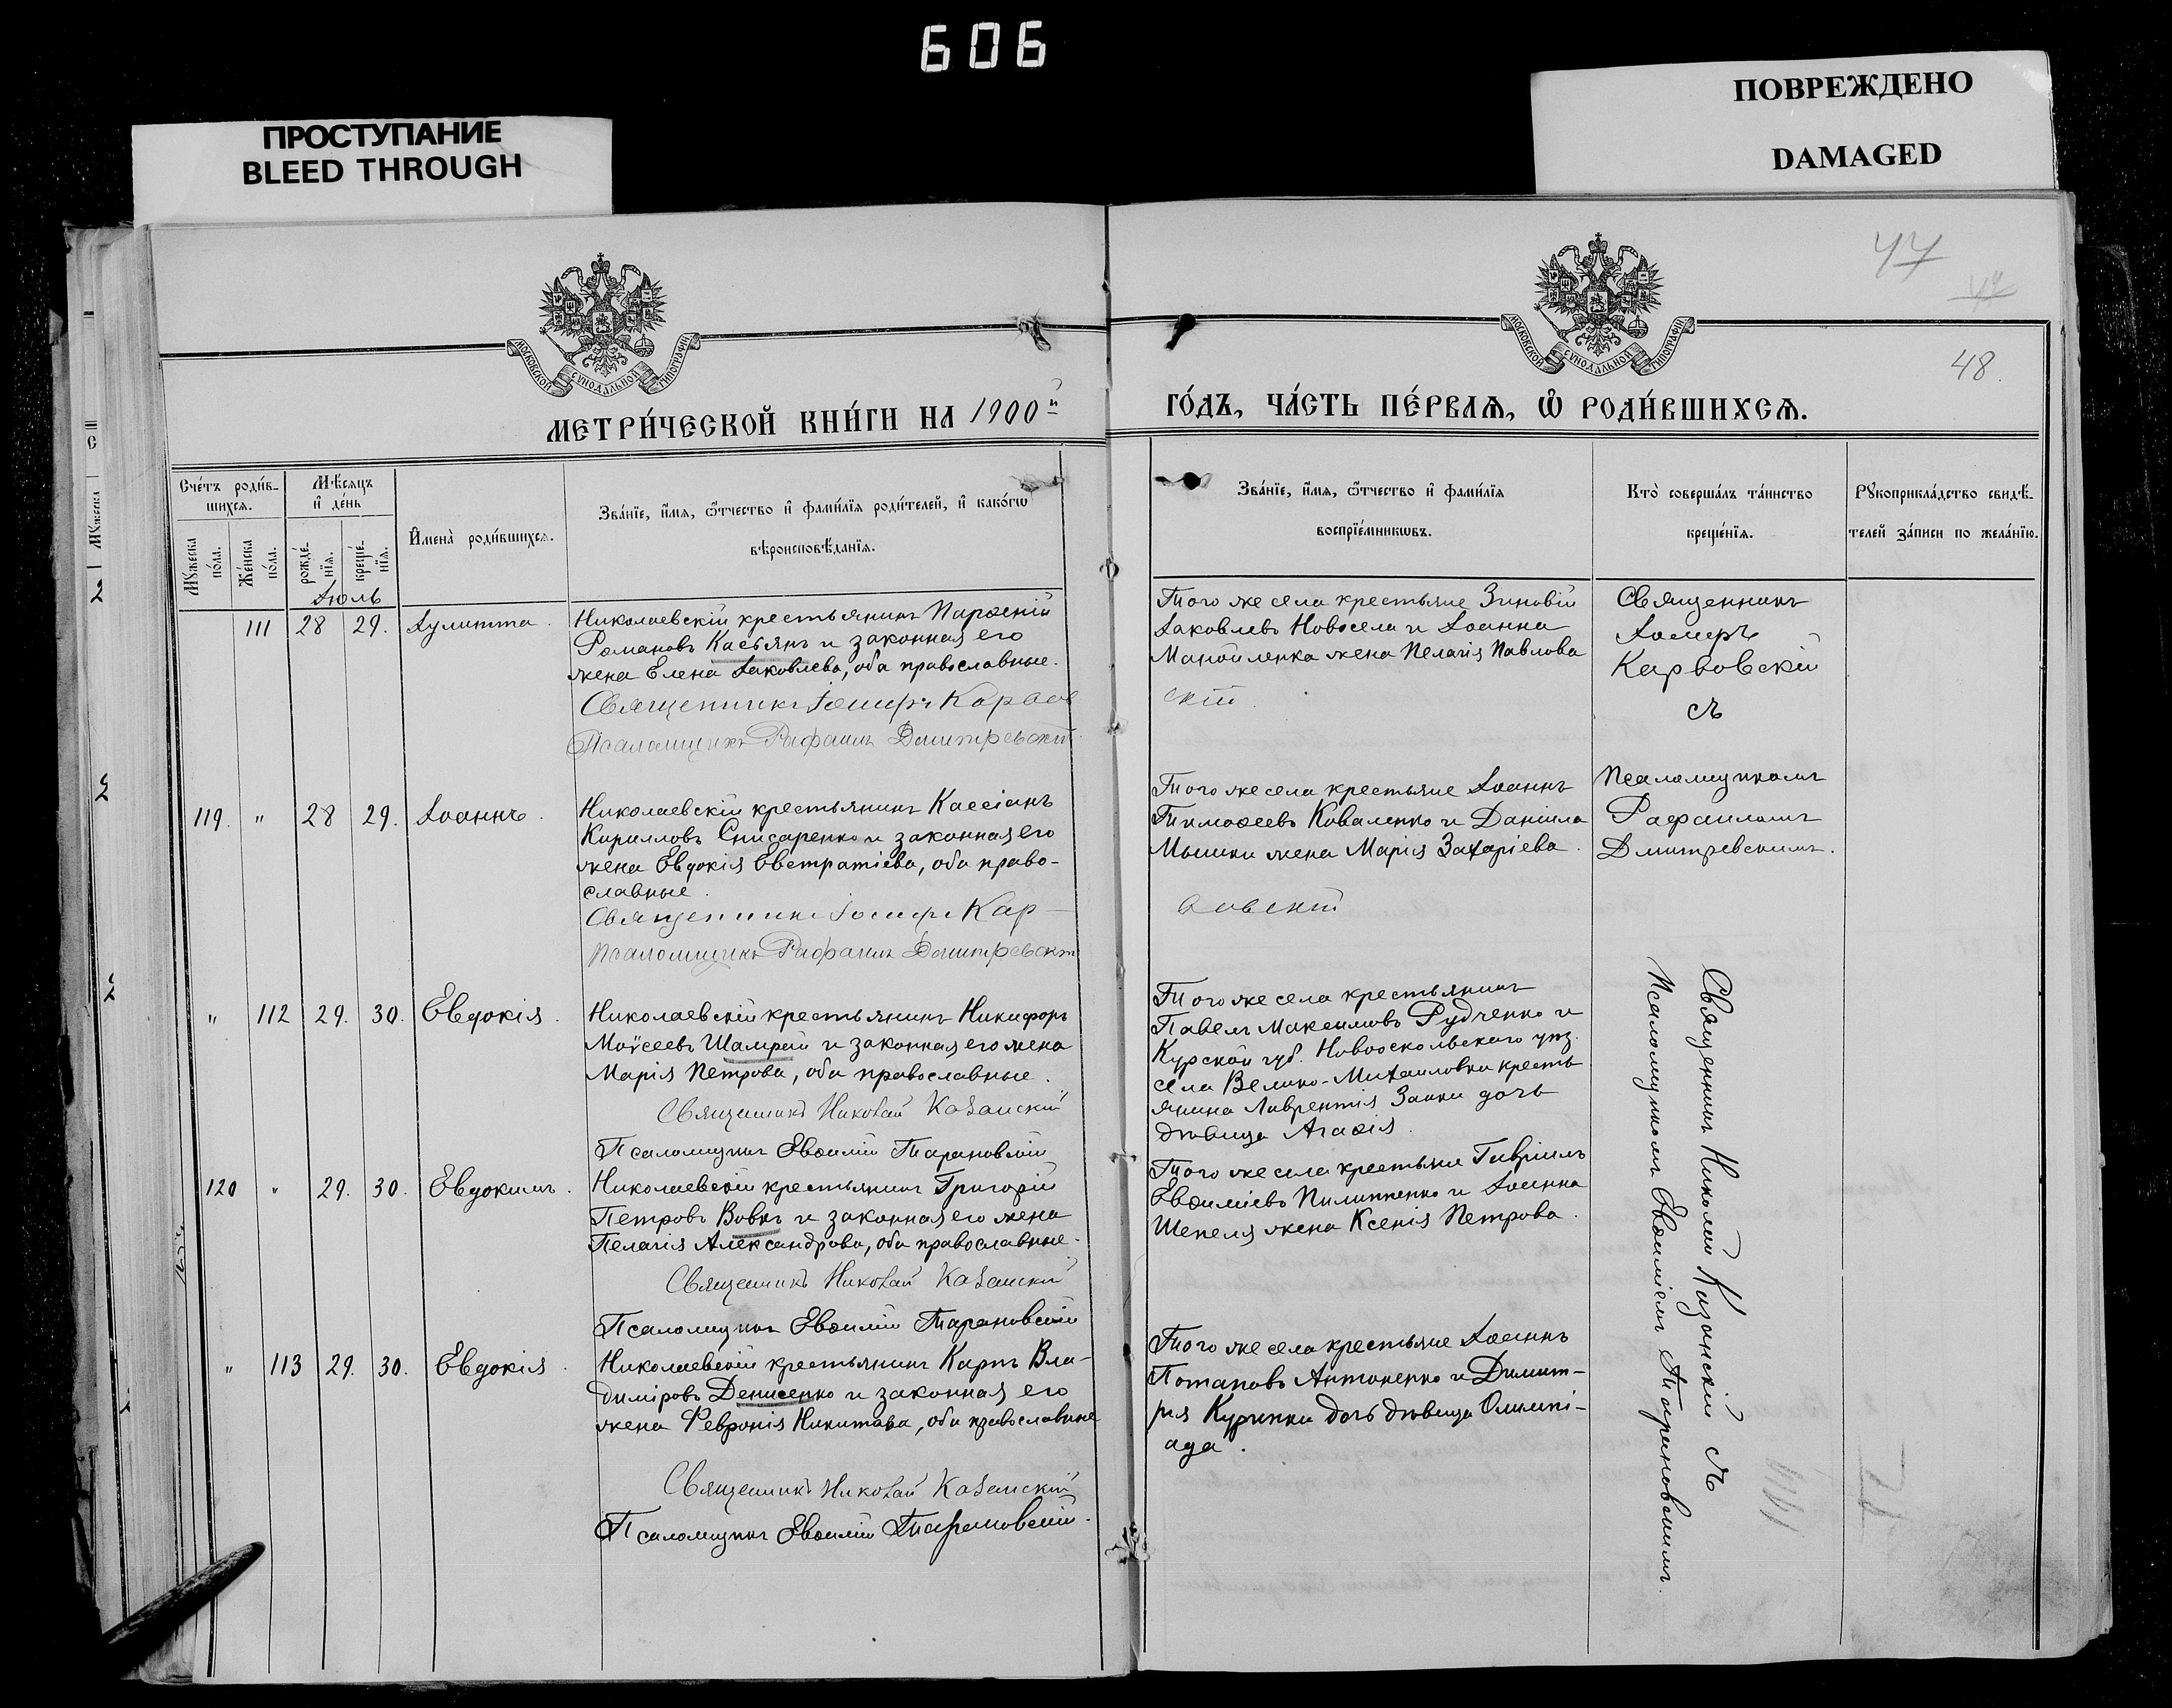 606
ПРОСТУПАНИЕ
BLEED THROUGH
ПОВРЕЖДЕНО
DAMAGED
47
48.
МОСКОВСКОЙ СѴНОДАЛЬНОЙ ТИПОГРАФІИ
МОСКОВСКОЙ СѴНОДАЛЬНОЙ ТИПОГРАФІИ
МЕТРИ́ЧЕСКОЙ КНИ́ГИ НА 1900й
ГО́ДЪ, ЧА́СТЬ ПЕ́РВАЯ, Ѡ҆ РОДИ́ВШИХСЯ.
Сче́тъ роди́в-
шихся.
Мꙋжеска по́ла.
Же́нска по́ла.
Мѣ́сяцъ
и҆ де́нь
рожде́-
нїя.
креще́-
нїя.
И҆мена̀ роди́вшихся.
Зва́нїе, и҆́мя, ѻ҆́тчество и҆ фами́лїя роди́телей, и҆ како́гѡ
вѣроисповѣ́данїя.
Зва́нїе, и҆́мя, ѻ҆́тчество и҆ фами́лїя
воспрїе́мникѡвъ.
Кто̀ соверша́лъ та́инство
креще́нїя.
Рꙋкоприкла́дство свидѣ́-
телей за́писи по жела́нїю.
Іюль
111 28 29. Іулитта.
Николаевскій крестьянинъ Парѳеній
Романовъ Касьянъ и законная его
жена Елена Іаковлева, оба православные.
Священникъ Іосифъ Карвов
Псаломщикъ Рафаилъ Дмитревскій.
Того же села крестьяне Зиновій
Іаковлевъ Новосела и Іоанна
Манойленка жена Пелагія Павлова
скій
Священникъ
Іосифъ
Карвовскій
съ
Псаломщикомъ
Рафаиломъ
Дмитревскимъ.
119. " 28 29. Іоаннъ.
Николаевскій крестьянинъ Кассіанъ
Кирилловъ Списаренко и законная его
жена Евдокія Евстратіева, оба право-
славные.
Священникъ Іосифъ Кар-
Псаломщикъ Рафаилъ Дмитревскій
Того же села крестьяне Іоаннъ
Тимоѳеевъ Коваленко и Даніила
Мышки жена Марія Захаріева.
вовскій
" 112 29. 30. Евдокія.
Николаевскій крестьянинъ Никифоръ
Моѵсеевъ Шамрай и законная его жена
Марія Петрова, оба православные.
Священникъ Николай Казанскій
Псаломщикъ Евѳимій Тарановскій
Того же села крестьянинъ
Павелъ Максимовъ Рудченко и
Курской губ. Новооскольскаго уѣз.
села Велико-Михайловки кресть-
янина Лаврентія Заики дочь
дѣвица Агаѳія.
120 " 29. 30. Евдокимъ.
Николаевскій крестьянинъ Григорій
Петровъ Вовкъ и законная его жена
Пелагія Александрова, оба православные.
Священникъ Николай Казанскій
Псаломщикъ Евѳимій Тарановскій
Того же села крестьяне Гавріилъ
Евѳиміевъ Пилипенко и Іоанна
Шепеля жена Ксенія Петрова.
" 113 29. 30. Евдокія.
Николаевскій крестьянинъ Карпъ Вла-
диміровъ Денисенко и законная его
жена Февронія Никитова, оба православные
Священникъ Николай Казанскій
Псаломщикъ Евѳимій Тарановскій.
Того же села крестьяне Іоаннъ
Потаповъ Антоненко и Димит-
рія Куринки дочь дѣвица Олимпі-
ада.
Священникъ Николай Казанскій съ
Псаломщикомъ Евѳиміемъ Тарановскимъ.